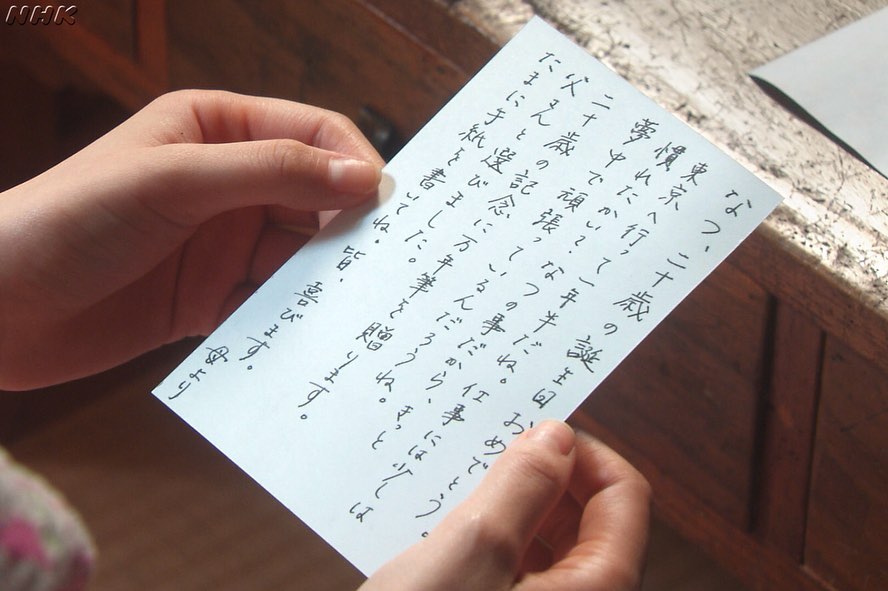 NHK
なつ、二十歳の誕生日おめでとう。
東京へ行って一年半だね。仕事には少しは
慣れたかい？なつの事だから、きっと
夢中で頑張っているんだろうね。
二十歳の記念に万年筆を贈ります。
父さんと選びました。
たまに手紙を書いてね。皆、喜びます。
母より